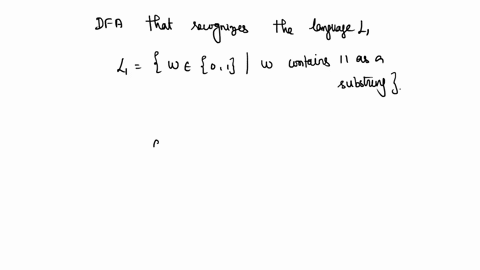 DFA that recognizes the language L,
L₁ = { w ∈ {0,1} | w contains 11 as a
substring }.